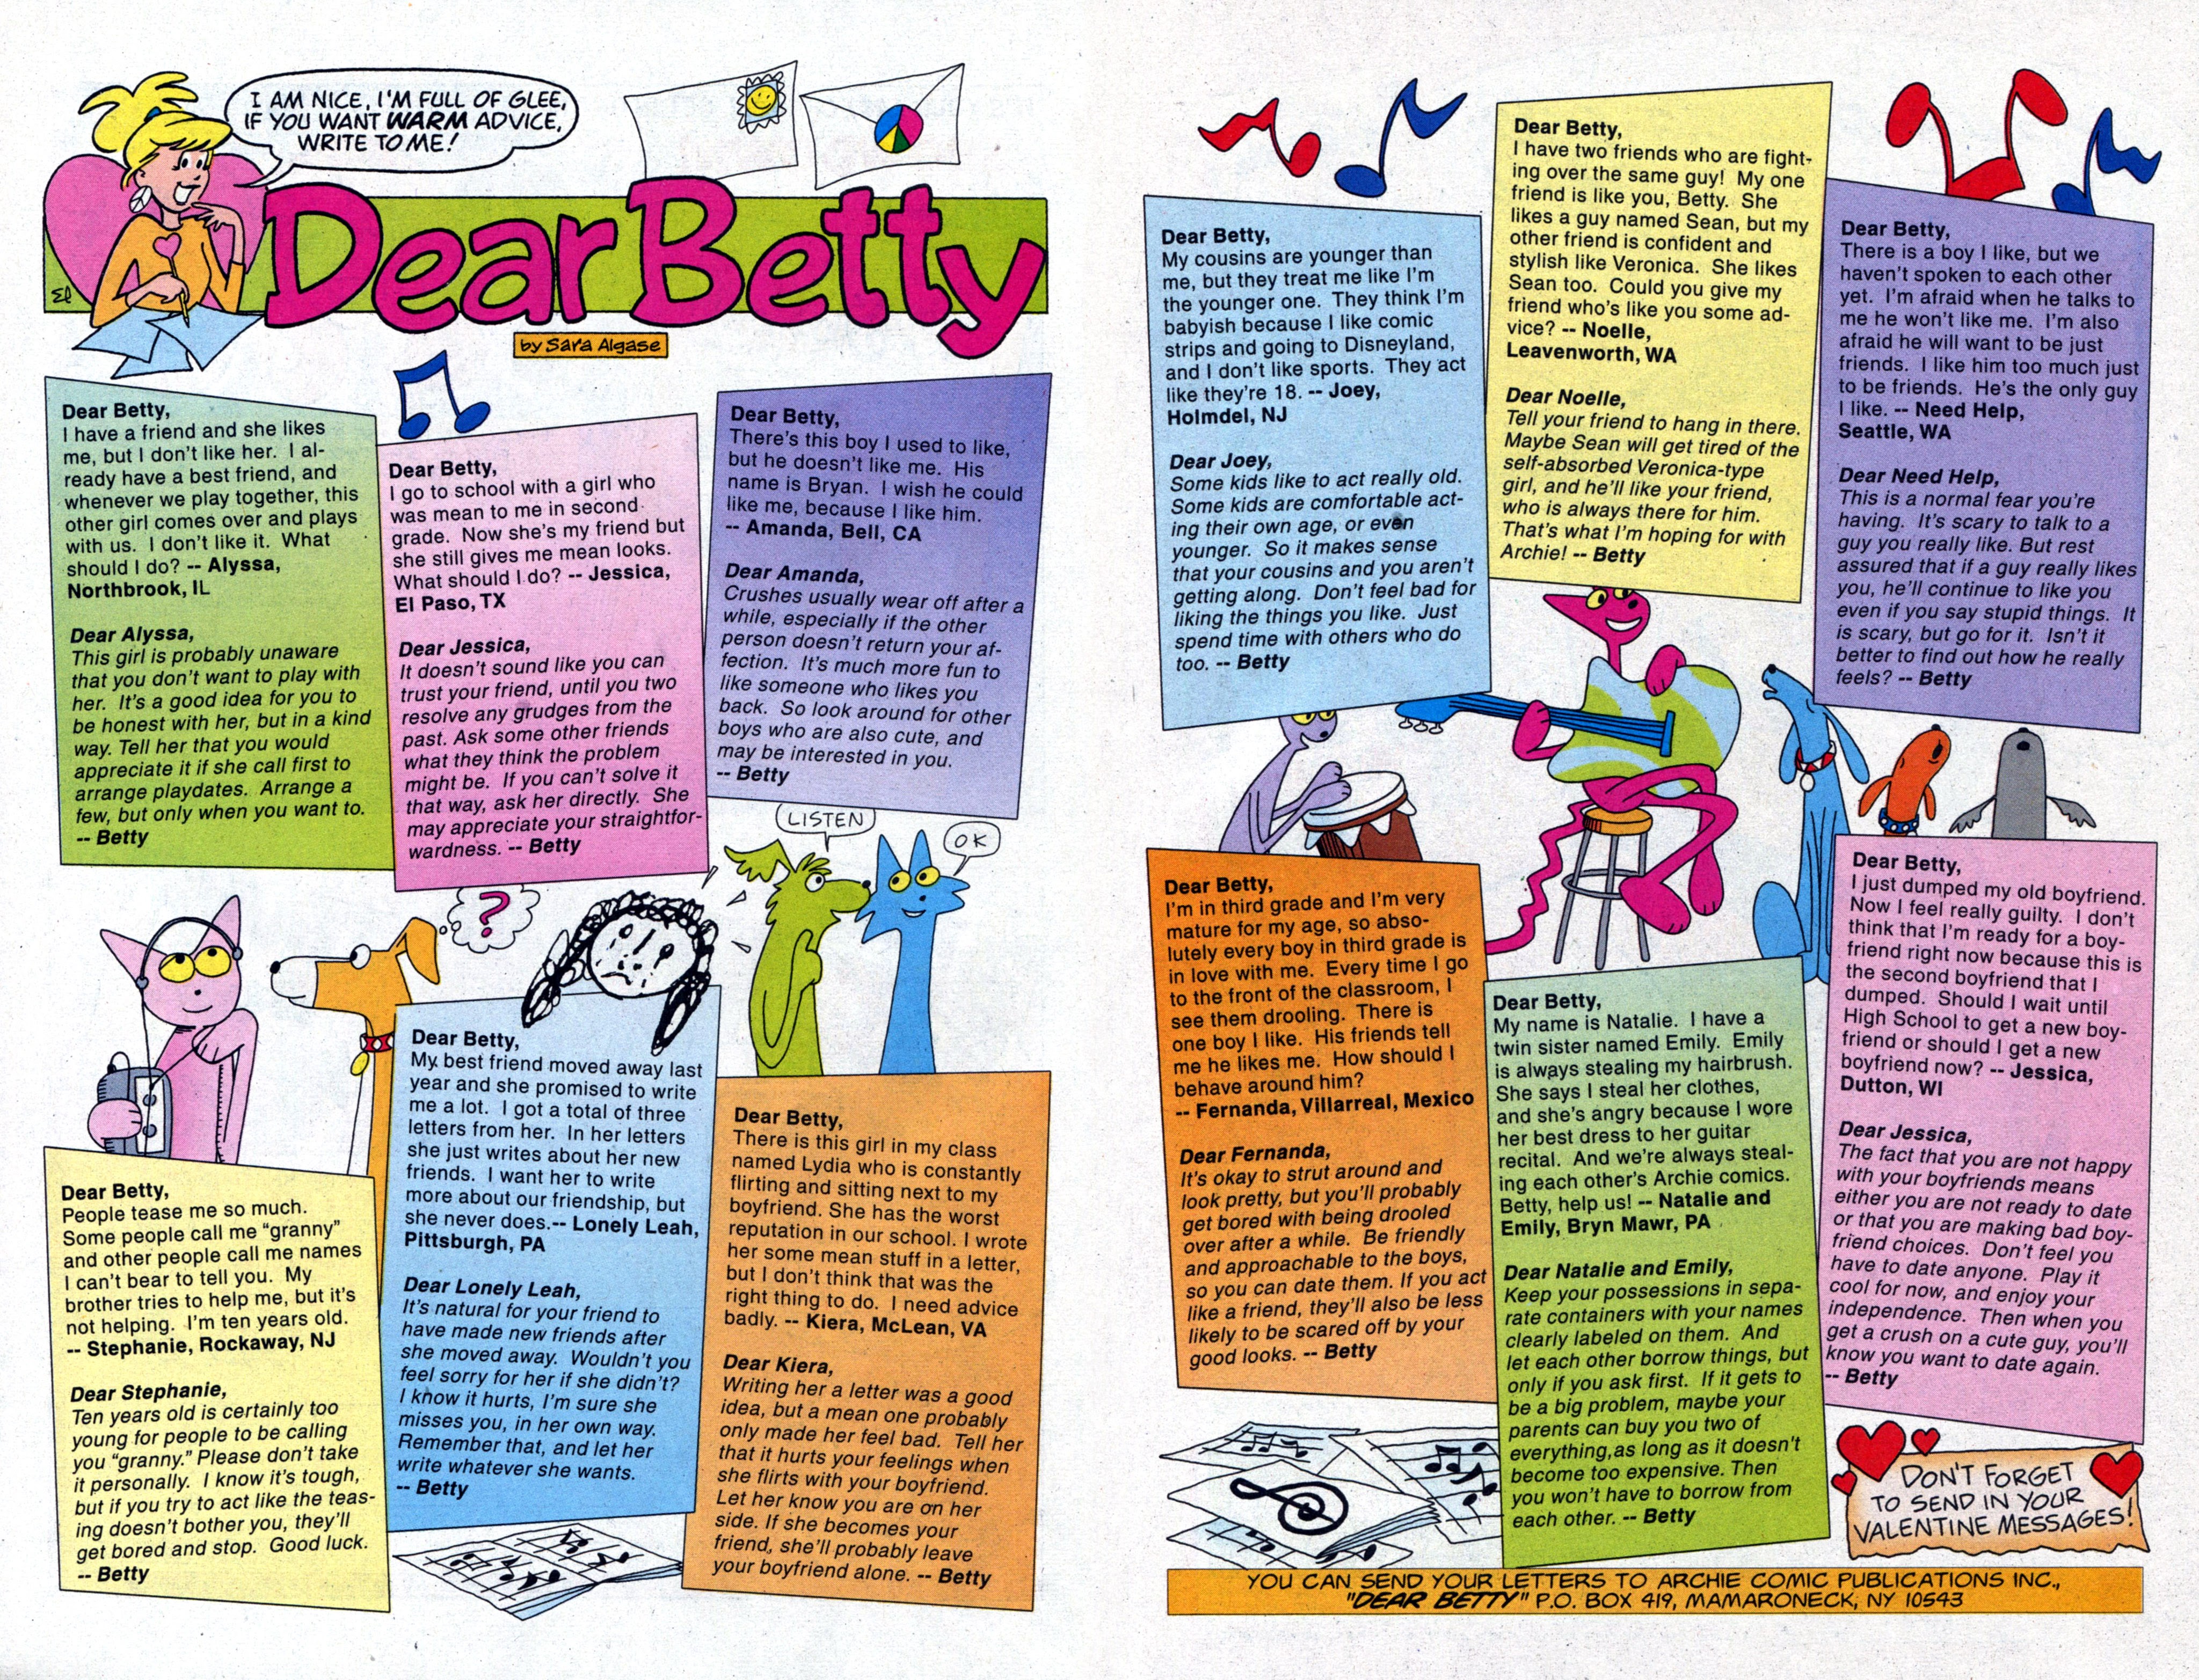 I AM NICE, I'M FULL OF GLEE,
IF YOU WANT WARM ADVICE,
WRITE TO ME!
Dear Betty
by Sara Algase
Dear Betty,
I have a friend and she likes
me, but I don't like her. I al-
ready have a best friend, and
whenever we play together, this
other girl comes over and plays
with us. I don't like it. What
should I do? -- Alyssa,
Northbrook, IL
Dear Alyssa,
This girl is probably unaware
that you don't want to play with
her. It's a good idea for you to
be honest with her, but in a kind
way. Tell her that you would
appreciate it if she call first to
arrange playdates. Arrange a
few, but only when you want to.
-- Betty
Dear Betty,
I go to school with a girl who
was mean to me in second
grade. Now she's my friend but
she still gives me mean looks.
What should I do? -- Jessica,
El Paso, TX
Dear Jessica,
It doesn't sound like you can
trust your friend, until you two
resolve any grudges from the
past. Ask some other friends
what they think the problem
might be. If you can't solve it
that way, ask her directly. She
may appreciate your straightfor-
wardness. -- Betty
Dear Betty,
There's this boy I used to like,
but he doesn't like me. His
name is Bryan. I wish he could
like me, because I like him.
-- Amanda, Bell, CA
Dear Amanda,
Crushes usually wear off after a
while, especially if the other
person doesn't return your af-
fection. It's much more fun to
like someone who likes you
back. So look around for other
boys who are also cute, and
may be interested in you.
-- Betty
LISTEN
OK
?
Dear Betty,
People tease me so much.
Some people call me "granny"
and other people call me names
I can't bear to tell you. My
brother tries to help me, but it's
not helping. I'm ten years old.
-- Stephanie, Rockaway, NJ
Dear Stephanie,
Ten years old is certainly too
young for people to be calling
you "granny." Please don't take
it personally. I know it's tough,
but if you try to act like the teas-
ing doesn't bother you, they'll
get bored and stop. Good luck.
-- Betty
Dear Betty,
My best friend moved away last
year and she promised to write
me a lot. I got a total of three
letters from her. In her letters
she just writes about her new
friends. I want her to write
more about our friendship, but
she never does.-- Lonely Leah,
Pittsburgh, PA
Dear Lonely Leah,
It's natural for your friend to
have made new friends after
she moved away. Wouldn't you
feel sorry for her if she didn't?
I know it hurts, I'm sure she
misses you, in her own way.
Remember that, and let her
write whatever she wants.
-- Betty
Dear Betty,
There is this girl in my class
named Lydia who is constantly
flirting and sitting next to my
boyfriend. She has the worst
reputation in our school. I wrote
her some mean stuff in a letter,
but I don't think that was the
right thing to do. I need advice
badly. -- Kiera, McLean, VA
Dear Kiera,
Writing her a letter was a good
idea, but a mean one probably
only made her feel bad. Tell her
that it hurts your feelings when
she flirts with your boyfriend.
Let her know you are on her
side. If she becomes your
friend, she'll probably leave
your boyfriend alone. -- Betty
Dear Betty,
My cousins are younger than
me, but they treat me like I'm
the younger one. They think I'm
babyish because I like comic
strips and going to Disneyland,
and I don't like sports. They act
like they're 18. -- Joey,
Holmdel, NJ
Dear Joey,
Some kids like to act really old.
Some kids are comfortable act-
ing their own age, or even
younger. So it makes sense
that your cousins and you aren't
getting along. Don't feel bad for
liking the things you like. Just
spend time with others who do
too. -- Betty
Dear Betty,
I have two friends who are fight-
ing over the same guy! My one
friend is like you, Betty. She
likes a guy named Sean, but my
other friend is confident and
stylish like Veronica. She likes
Sean too. Could you give my
friend who's like you some ad-
vice? -- Noelle,
Leavenworth, WA
Dear Noelle,
Tell your friend to hang in there.
Maybe Sean will get tired of the
self-absorbed Veronica-type
girl, and he'll like your friend,
who is always there for him.
That's what I'm hoping for with
Archie! -- Betty
Dear Betty,
There is a boy I like, but we
haven't spoken to each other
yet. I'm afraid when he talks to
me he won't like me. I'm also
afraid he will want to be just
friends. I like him too much just
to be friends. He's the only guy
I like. -- Need Help,
Seattle, WA
Dear Need Help,
This is a normal fear you're
having. It's scary to talk to a
guy you really like. But rest
assured that if a guy really likes
you, he'll continue to like you
even if you say stupid things. It
is scary, but go for it. Isn't it
better to find out how he really
feels? -- Betty
Dear Betty,
I'm in third grade and I'm very
mature for my age, so abso-
lutely every boy in third grade is
in love with me. Every time I go
to the front of the classroom, I
see them drooling. There is
one boy I like. His friends tell
me he likes me. How should I
behave around him?
-- Fernanda, Villarreal, Mexico
Dear Fernanda,
It's okay to strut around and
look pretty, but you'll probably
get bored with being drooled
over after a while. Be friendly
and approachable to the boys,
so you can date them. If you act
like a friend, they'll also be less
likely to be scared off by your
good looks. -- Betty
Dear Betty,
My name is Natalie. I have a
twin sister named Emily. Emily
is always stealing my hairbrush.
She says I steal her clothes,
and she's angry because I wore
her best dress to her guitar
recital. And we're always steal-
ing each other's Archie comics.
Betty, help us! -- Natalie and
Emily, Bryn Mawr, PA
Dear Natalie and Emily,
Keep your possessions in sepa-
rate containers with your names
clearly labeled on them. And
let each other borrow things, but
only if you ask first. If it gets to
be a big problem, maybe your
parents can buy you two of
everything,as long as it doesn't
become too expensive. Then
you won't have to borrow from
each other. -- Betty
Dear Betty,
I just dumped my old boyfriend.
Now I feel really guilty. I don't
think that I'm ready for a boy-
friend right now because this is
the second boyfriend that I
dumped. Should I wait until
High School to get a new boy-
friend or should I get a new
boyfriend now? -- Jessica,
Dutton, WI
Dear Jessica,
The fact that you are not happy
with your boyfriends means
either you are not ready to date
or that you are making bad boy-
friend choices. Don't feel you
have to date anyone. Play it
cool for now, and enjoy your
independence. Then when you
get a crush on a cute guy, you'll
know you want to date again.
-- Betty
DON'T FORGET
TO SEND IN YOUR
VALENTINE MESSAGES!
YOU CAN SEND YOUR LETTERS TO ARCHIE COMIC PUBLICATIONS INC.,
"DEAR BETTY" P.O. BOX 419, MAMARONECK, NY 10543